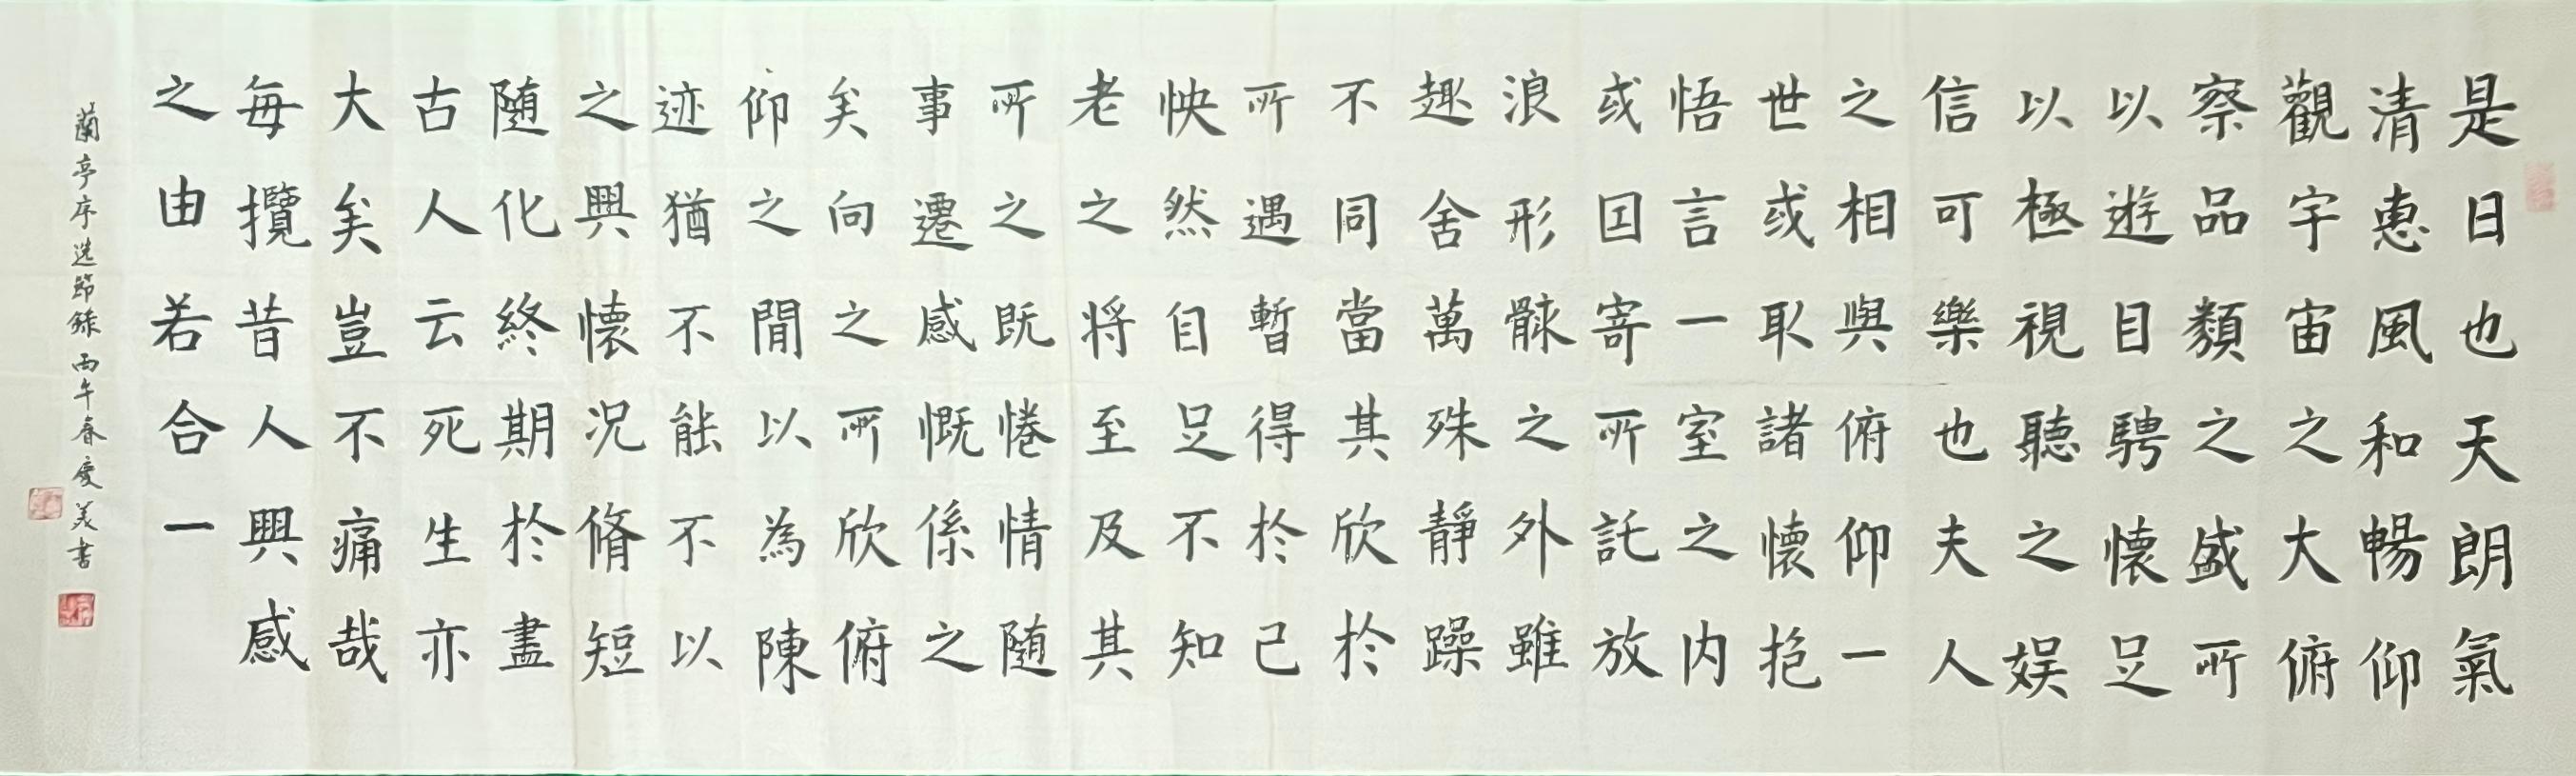 是日也天朗氣
清惠風和暢仰
觀宇宙之大俯
察品類之盛所
以遊目騁懷足
以極視聽之娱
信可樂也夫人
之相與俯仰一
世或取諸懷抱
悟言一室之内
或因寄所託放
浪形骸之外雖
趣舍萬殊静躁
不同當其欣於
所遇暫得於己
怏然自足不知
老之将至及其
所之既惓情随
事遷感慨係之
矣向之所欣俯
仰之閒以為陳
迹猶不能不以
之興懷况脩短
随化終期於盡
古人云死生亦
大矣豈不痛哉
每攬昔人興感
之由若合一
蘭亭序选節錄丙午春慶美書